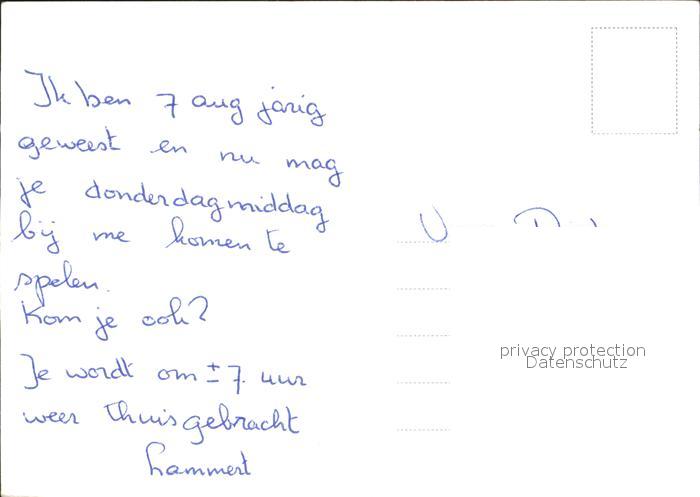 Ik ben 7 aug jarig
geweest en nu mag
je donderdagmiddag
bij me komen te
spelen.
Kom je ook?
Je wordt om ± 7. uur
weer thuisgebracht
Lammert
privacy protection
Datenschutz